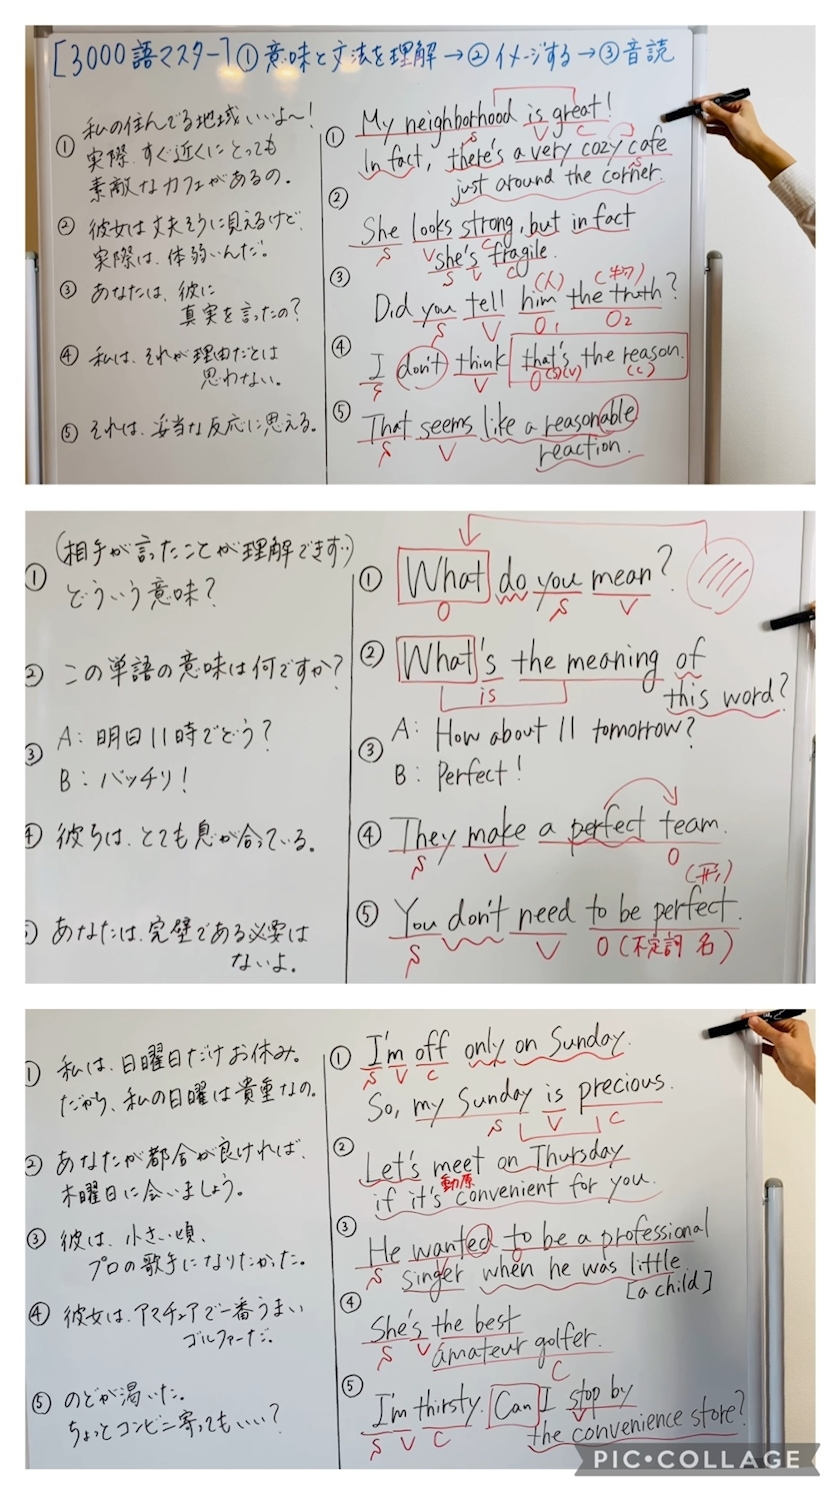 [3000語マスター] ① 意味と文法を理解 → ② イメージする → ③ 音読
① 私の住んでる地域いいよ〜!
実際、すぐ近くにとっても
素敵なカフェがあるの。
② 彼女は丈夫そうに見えるけど、
実際は、体弱いんだ。
③ あなたは、彼に
真実を言ったの?
④ 私は、それが理由だとは
思わない。
⑤ それは、妥当な反応に思える。
① My neighborhood is great!
S V C
In fact, there's a very cozy cafe
S
just around the corner.
② She looks strong, but in fact
S V C
she's fragile.
S V C
③ (人) (物)
Did you tell him the truth?
S V O1 O2
④ I don't think that's the reason.
S V O (S)(V) (C)
⑤ That seems like a reasonable
S V
reaction.
① (相手が言ったことが理解できず…)
どういう意味?
② この単語の意味は何ですか?
③ A: 明日11時でどう?
B: バッチリ!
④ 彼らは、とても息が合っている。
⑤ あなたは、完璧である必要は
ないよ。
① What do you mean?
O S V
② What's the meaning of
is
this word?
③ A: How about 11 tomorrow?
B: Perfect!
④ They make a perfect team.
S V O
(形)
⑤ You don't need to be perfect.
S V O (不定詞 名)
① 私は、日曜日だけお休み。
だから、私の日曜は貴重なの。
② あなたが都合が良ければ、
木曜日に会いましょう。
③ 彼は、小さい頃、
プロの歌手になりたかった。
④ 彼女は、アマチュアで一番うまい
ゴルファーだ。
⑤ のどが渇いた。
ちょっとコンビニ寄ってもいい?
① I'm off only on Sunday.
S V C
So, my Sunday is precious.
S V C
② Let's meet on Thursday
動原
if it's convenient for you.
③ He wanted to be a professional
S V O
singer when he was little.
[a child]
④ She's the best
S V
amateur golfer.
C
⑤ I'm thirsty. Can I stop by
S V C V
the convenience store?
PIC•COLLAGE